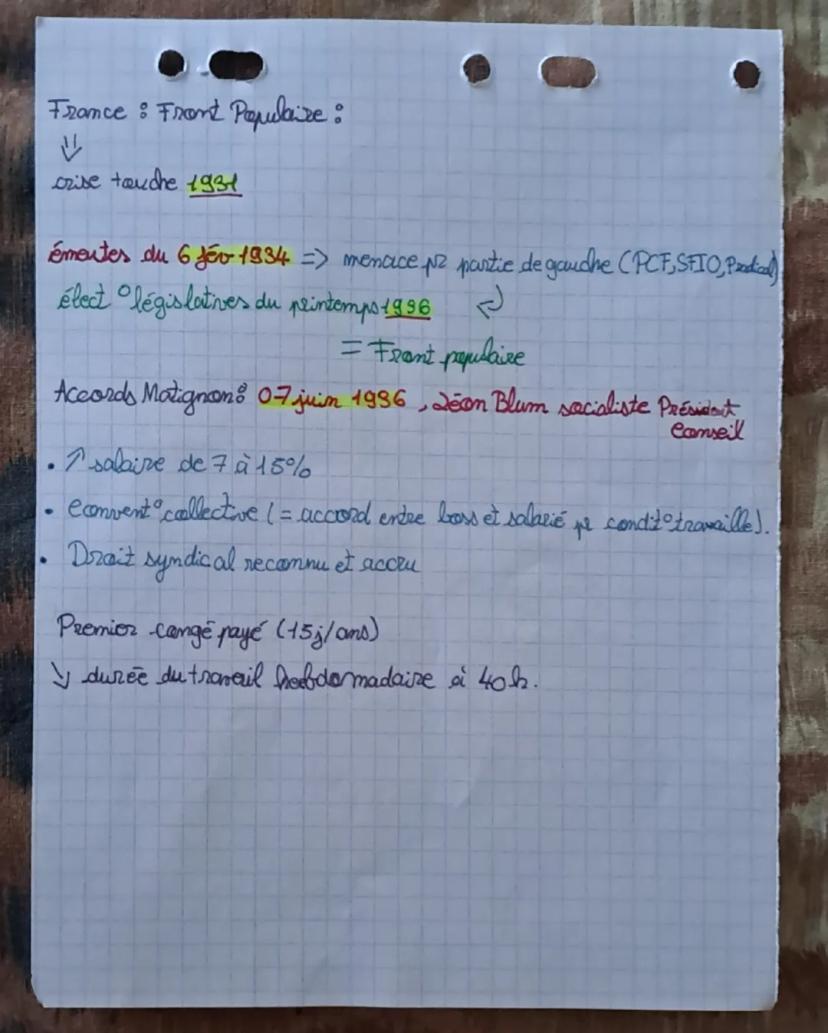 France : Front Populaire :
⇓
crise touche 1931
émeutes du 6 fév 1934 => menace pr partie de gauche (PCF, SFIO, Radical)
élect° législatives du printemps 1936 ↲
= Front populaire
Accords Matignon : 07 juin 1936, Léon Blum socialiste Président
Conseil
• ↗ salaire de 7 à 15%
• Convent° collective (= accord entre boss et salarié pr condit° travaille).
• Droit syndical reconnu et accru
Premier congé payé (15j/ans)
↘ durée du travail hebdomadaire à 40h.